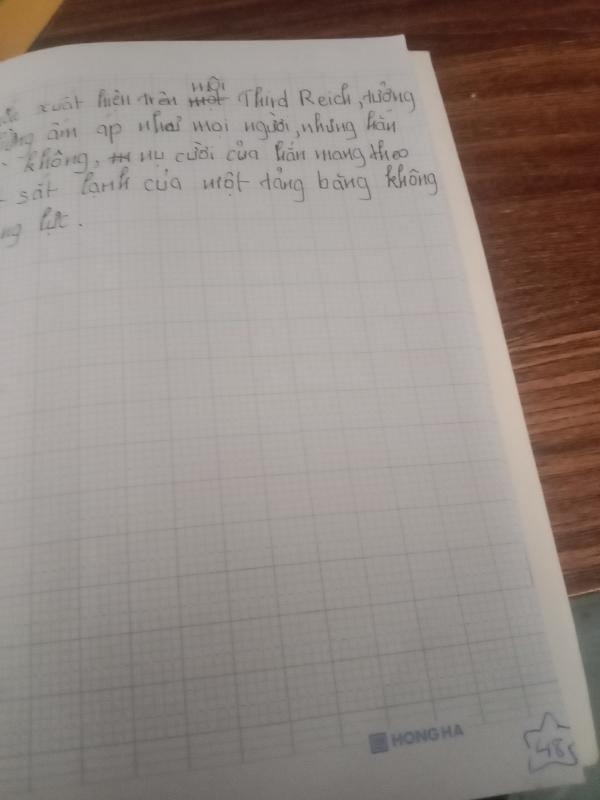 xuất hiện trên môi một Third Reich, tưởng
ấm áp như mọi người, nhưng hắn
không, nụ cười của hắn mang theo
sát lạnh của một tảng băng không
lực.
HONG HA
48